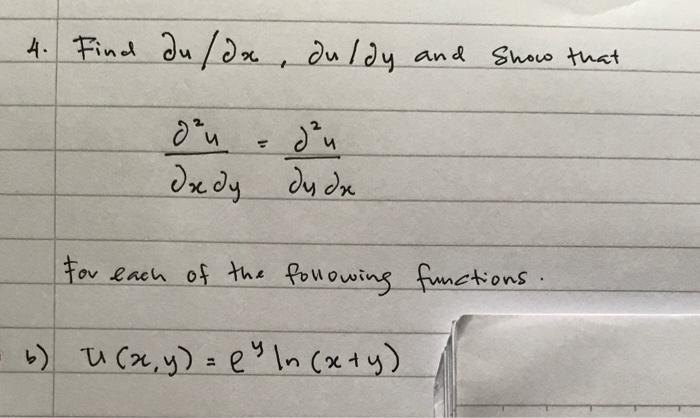 4. Find ∂u/∂x, ∂u/∂y and show that
∂²u/∂x∂y = ∂²u/∂y∂x
For each of the following functions.
b) u(x,y) = e^y ln(x+y)